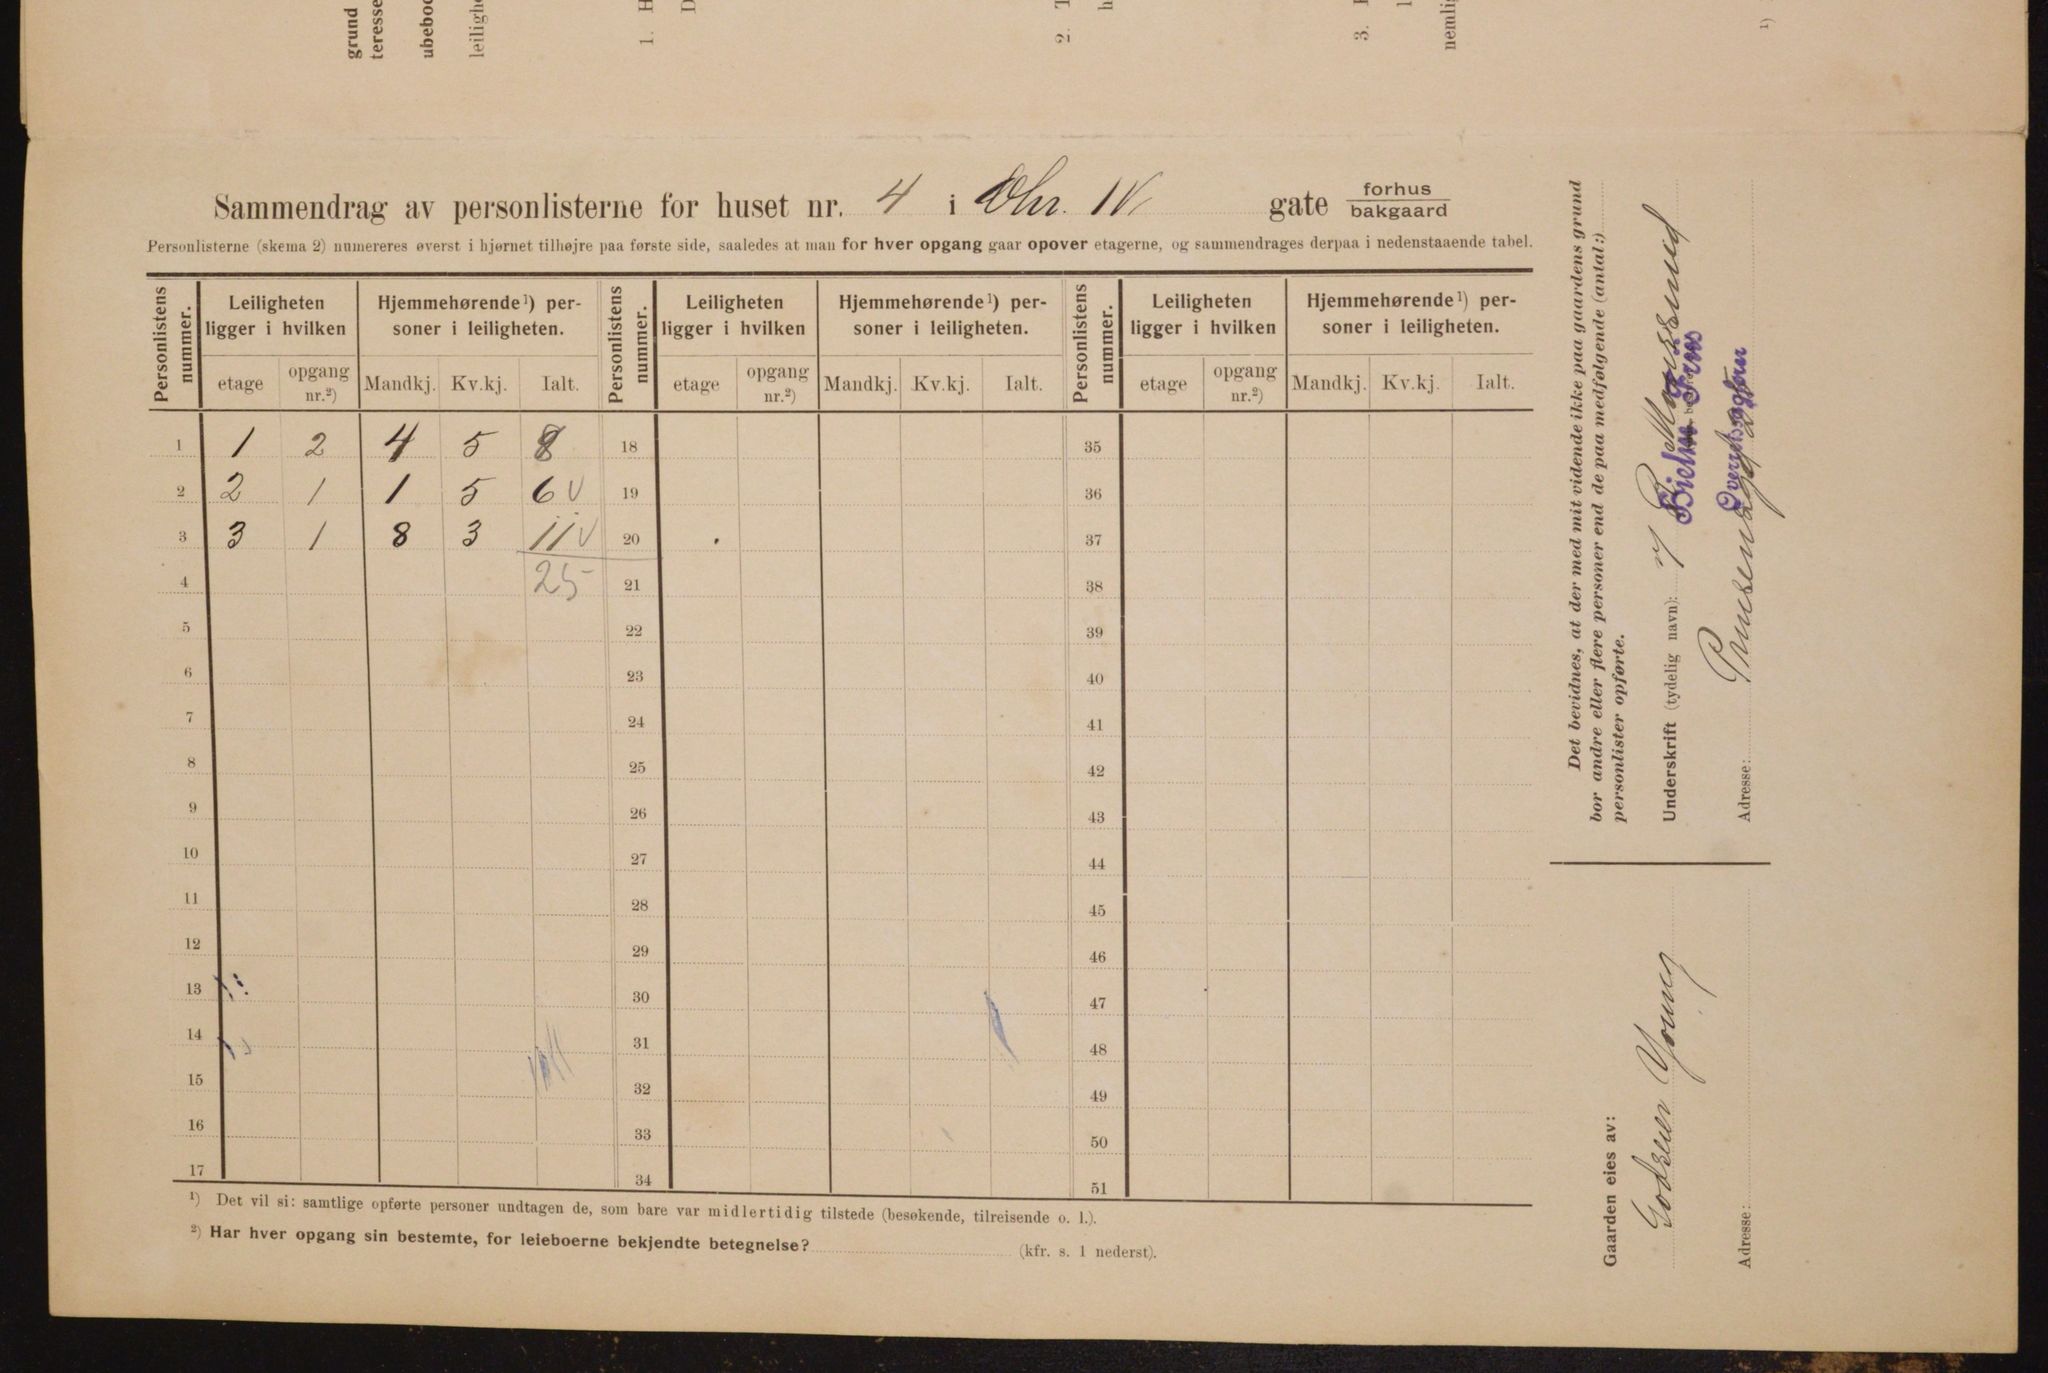 grund
teresse
ubeboe
leilighe
1. H
D
2. T
h
3. H
nemlig
1)
Sammendrag av personlisterne for huset nr. 4 i Chr. IV gate forhus bakgaard
Personlisterne (skema 2) numereres øverst i hjørnet tilhøjre paa første side, saaledes at man for hver opgang gaar opover etagerne, og sammendrages derpaa i nedenstaaende tabel.
Personlistens nummer. Leiligheten ligger i hvilken Hjemmehørende ¹) personer i leiligheten. Personlistens nummer. Leiligheten ligger i hvilken Hjemmehørende ¹) personer i leiligheten. Personlistens nummer. Leiligheten ligger i hvilken Hjemmehørende ¹) personer i leiligheten.
etage opgang nr.²) Mandkj. Kv.kj. Ialt. etage opgang nr.²) Mandkj. Kv.kj. Ialt. etage opgang nr.²) Mandkj. Kv.kj. Ialt.
1 1 2 4 5 8 18 35
2 2 1 1 5 6 V 19 36
3 3 1 8 3 11 V 20 37
4 25 21 38
5 22 39
6 23 40
7 24 41
8 25 42
9 26 43
10 27 44
11 28 45
12 29 46
13 30 47
14 31 48
15 32 49
16 33 50
17 34 51
¹) Det vil si: samtlige opførte personer undtagen de, som bare var midlertidig tilstede (besøkende, tilreisende o. l.).
²) Har hver opgang sin bestemte, for leieboerne bekjendte betegnelse? (kfr. s. 1 nederst).
Det bevidnes, at der med mit vidende ikke paa gaardens grund
bor andre eller flere personer end de paa medfølgende (antal:)
personlister opførte.
Underskrift (tydelig navn):
Adresse: Prinsensgt
Gaarden eies av:
Godzier Young
Adresse: